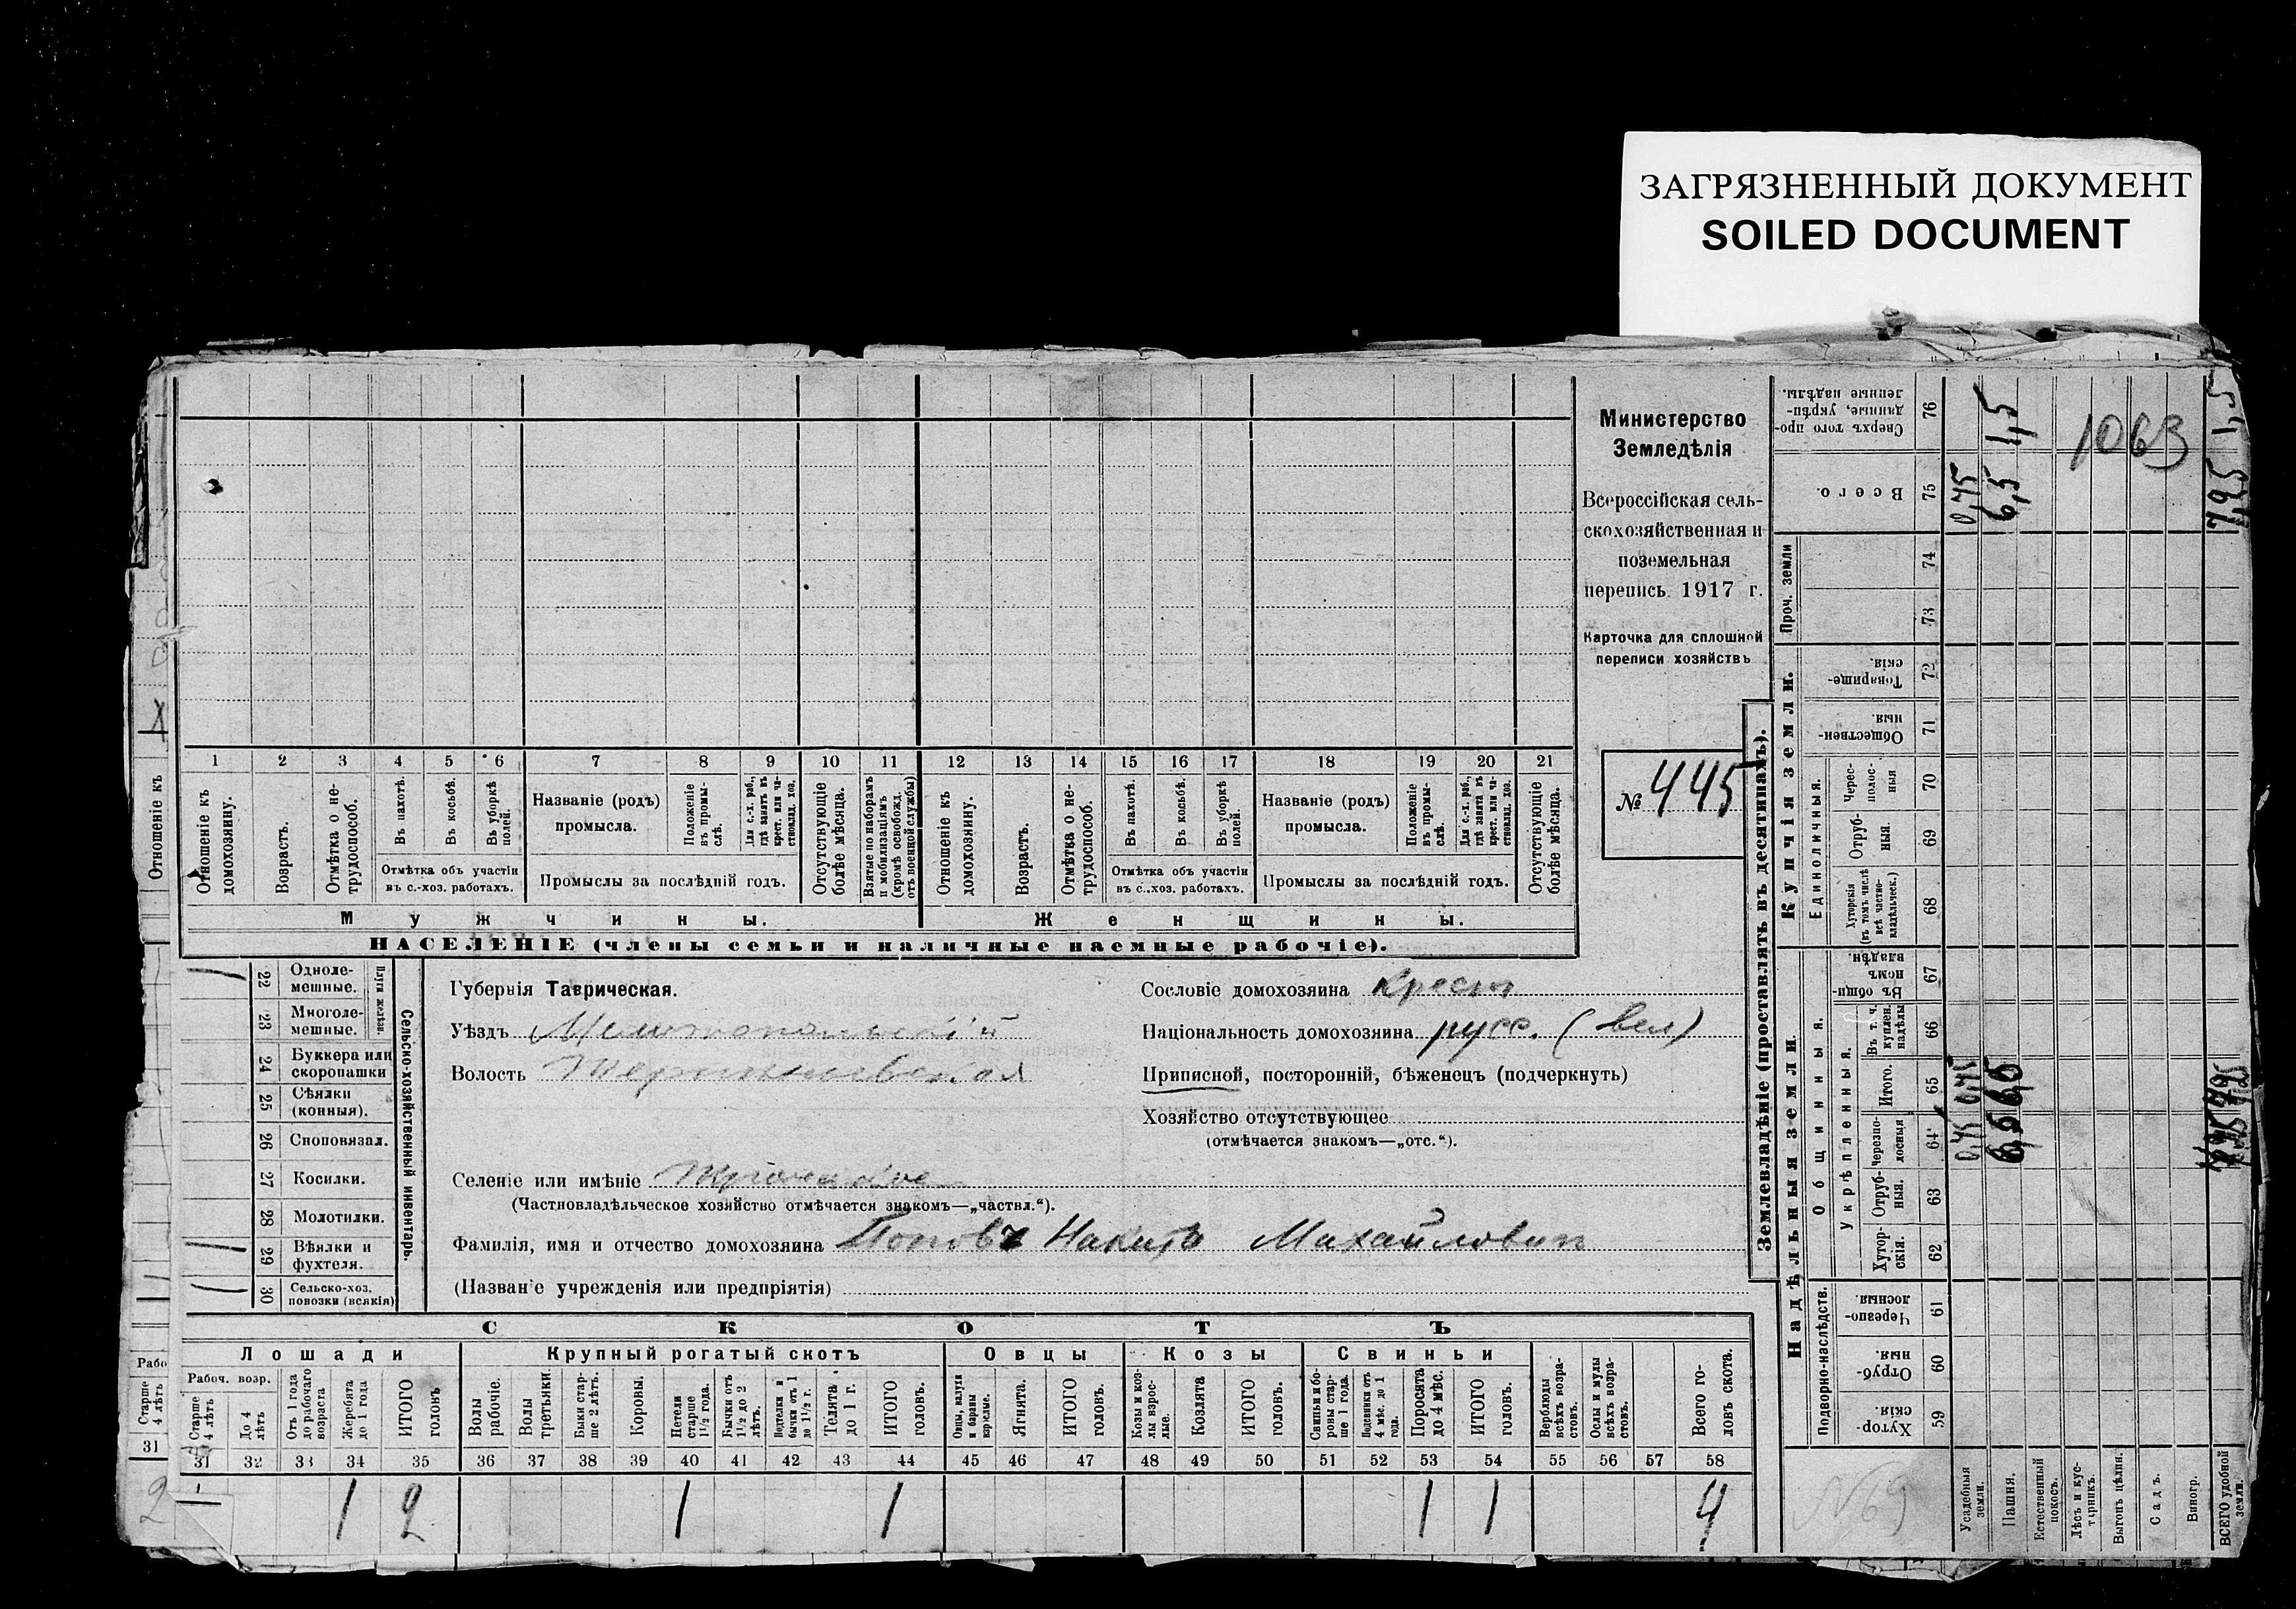 ЗАГРЯЗНЕННЫЙ ДОКУМЕНТ
SOILED DOCUMENT
Министерство
Земледѣлія
Всероссійская сель-
скохозяйственная и
поземельная
перепись 1917 г.
Карточка для сплошной
переписи хозяйствъ
№ 445
1 2 3 4 5 6 7 8 9 10 11 12 13 14 15 16 17 18 19 20 21
Отношеніе къ домохозяину.
Возрастъ.
Отмѣтка о не-трудоспособ.
Въ пахотѣ.
Въ косьбѣ.
Въ уборкѣ полей.
Отмѣтка объ участіи
въ с.-хоз. работахъ.
Названіе (родъ)
промысла.
Положеніе въ промы-слѣ.
Для с.-х. раб., гдѣ занятъ въ крест. или ча-стновлад. хоз.
Промыслы за послѣдній годъ.
Отсутствующіе болѣе мѣсяца.
Взятые по наборамъ и мобилизаціямъ (кромѣ освобожд. отъ военной службы)
Отношеніе къ домохозяину.
Возрастъ.
Отмѣтка о не-трудоспособ.
Въ пахотѣ.
Въ косьбѣ.
Въ уборкѣ полей.
Отмѣтка объ участіи
въ с.-хоз. работахъ.
Названіе (родъ)
промысла.
Положеніе въ промы-слѣ.
Для с.-х. раб., гдѣ занята въ крест. или ча-стновлад. хоз.
Промыслы за послѣдній годъ.
Отсутствующіе болѣе мѣсяца.
Мужчины.
Женщины.
НАСЕЛЕНІЕ (члены семьи и наличные наемные рабочіе).
Сельско-хозяйственный инвентарь.
Плуги желѣзн.
22 Одноле-мешные.
23 Многоле-мешные.
24 Буккера или скоропашки
25 Сѣялки (конныя).
26 Сноповязал.
27 Косилки.
28 Молотилки.
29 Вѣялки и фухтеля.
30 Сельско-хоз. повозки (всякія)
Губернія Таврическая.
Уѣздъ Мелитопольскій
Волость
Селеніе или имѣніе
(Частновладѣльческое хозяйство отмѣчается знакомъ—„частвл.“).
Фамилія, имя и отчество домохозяина Поповъ Никита Михайлович
(Названіе учрежденія или предпріятія)
Сословіе домохозяина крест
Національность домохозяина русс. (вел)
Приписной, посторонній, бѣженецъ (подчеркнуть)
Хозяйство отсутствующее
(отмѣчается знакомъ—„отс.“).
СКОТЪ
Лошади
Крупный рогатый скотъ
Овцы
Козы
Свиньи
Рабоч. возр.
Старше 4 лѣтъ
До 4 лѣтъ
Отъ 1 года до рабочаго возраста
Жеребята до 1 года
ИТОГО головъ
Волы рабочіе.
Волы третьяки.
Быки стар-ше 2 лѣтъ.
Коровы.
Нетели старше 1½ года.
Бычки отъ 1½ до 2 лѣтъ.
Подтелки и бычки отъ 1 до 1½ г.
Телята до 1 г.
ИТОГО головъ.
Овцы, валухи и бараны взрослые.
Ягнята.
ИТОГО головъ.
Козы и коз-лы взрос-лые.
Козлята
ИТОГО головъ.
Свиньи и бо-ровы стар-ше 1 года.
Подсвинки отъ 4 мѣс. до 1 года.
Поросята до 4 мѣс.
ИТОГО головъ.
Верблюды всѣхъ возра-стовъ.
Ослы и мулы всѣхъ возра-стовъ.
Всего го-ловъ скота.
31 32 33 34 35 36 37 38 39 40 41 42 43 44 45 46 47 48 49 50 51 52 53 54 55 56 57 58
1 1 2 1 1 1 1 4
Отношеніе къ
Рабо
Старше 4 лѣтъ
31
2
Землевладѣніе (проставлять въ десятинахъ).
Купчія земли.
Надѣльныя земли.
Сверхъ того про-данные, укрѣп-ленные надѣлы. 76
Всего. 75
Проч. земли
74
73
Товарище-скія. 72
Обществен-ныя. 71
Единоличныя.
Черес-полос-ныя 70
Отруб-ныя. 69
Хуторскія (въ томъ числѣ всѣ частно-владѣльческ.) 68
Общинныя.
Въ общи-нномъ владѣн. 67
Укрѣпленныя.
Въ т. ч. куплен. надѣлы 66
Итого. 65
Черезпо-лосныя 64
Отруб-ныя. 63
Хутор-скія. 62
Подворно-наслѣдств.
Черезпо-лосныя. 61
Отруб-ныя. 60
Хутор-скія. 59
Усадебныя земли.
Пашня.
Естественный покосъ.
Лѣсъ и кус-тарникъ.
Выгонъ цѣлин.
Садъ.
Виногр.
ВСЕГО удобной земли.
0,45
6,5
1,5
1063
7,25
1,5
0,45 0,45
6,5
№69